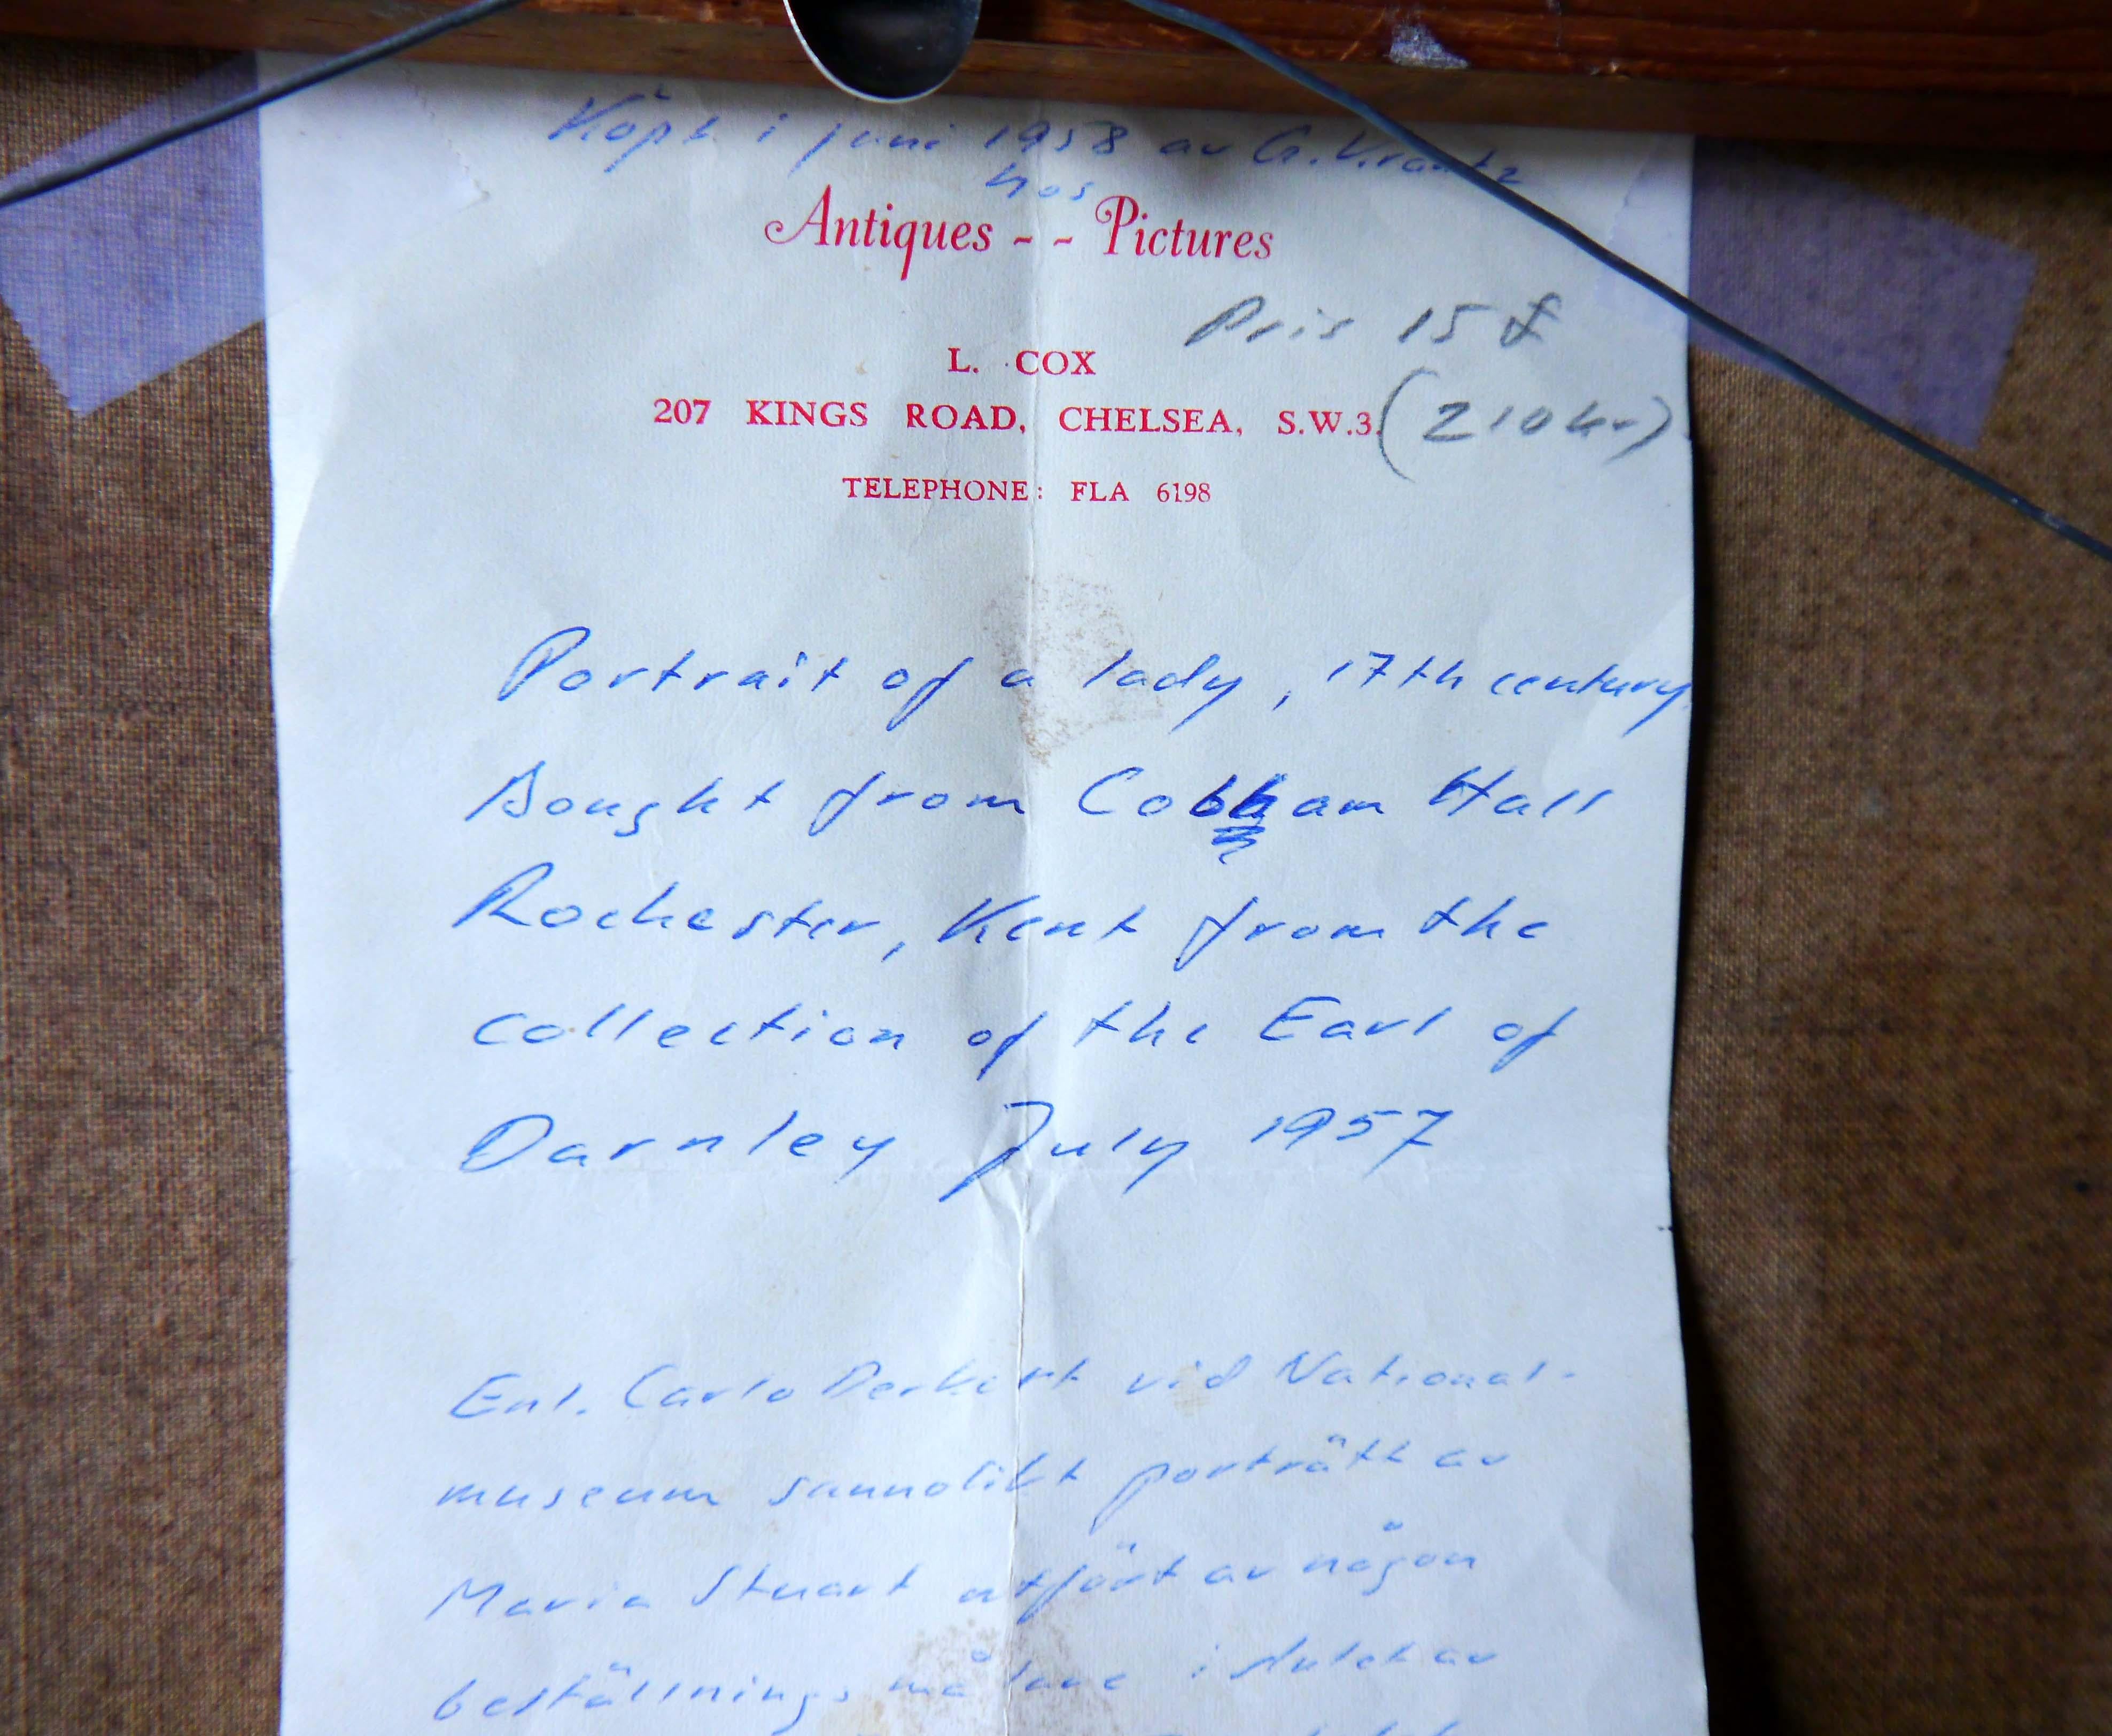 Köpt i juni 1958 av G. Krantz
hos
Antiques - - Pictures
Pris 15 £
L. COX
207 KINGS ROAD, CHELSEA, S.W.3.
(210 kr)
TELEPHONE: FLA 6198
Portrait of a lady, 17th century.
Bought from Cobham Hall
Rochester, Kent from the
collection of the Earl of
Darnley July 1957
Enl. Carlo Derkert vid National-
museum sannolikt porträtt av
Maria Stuart utfört av någon
beställningsmålare i slutet av